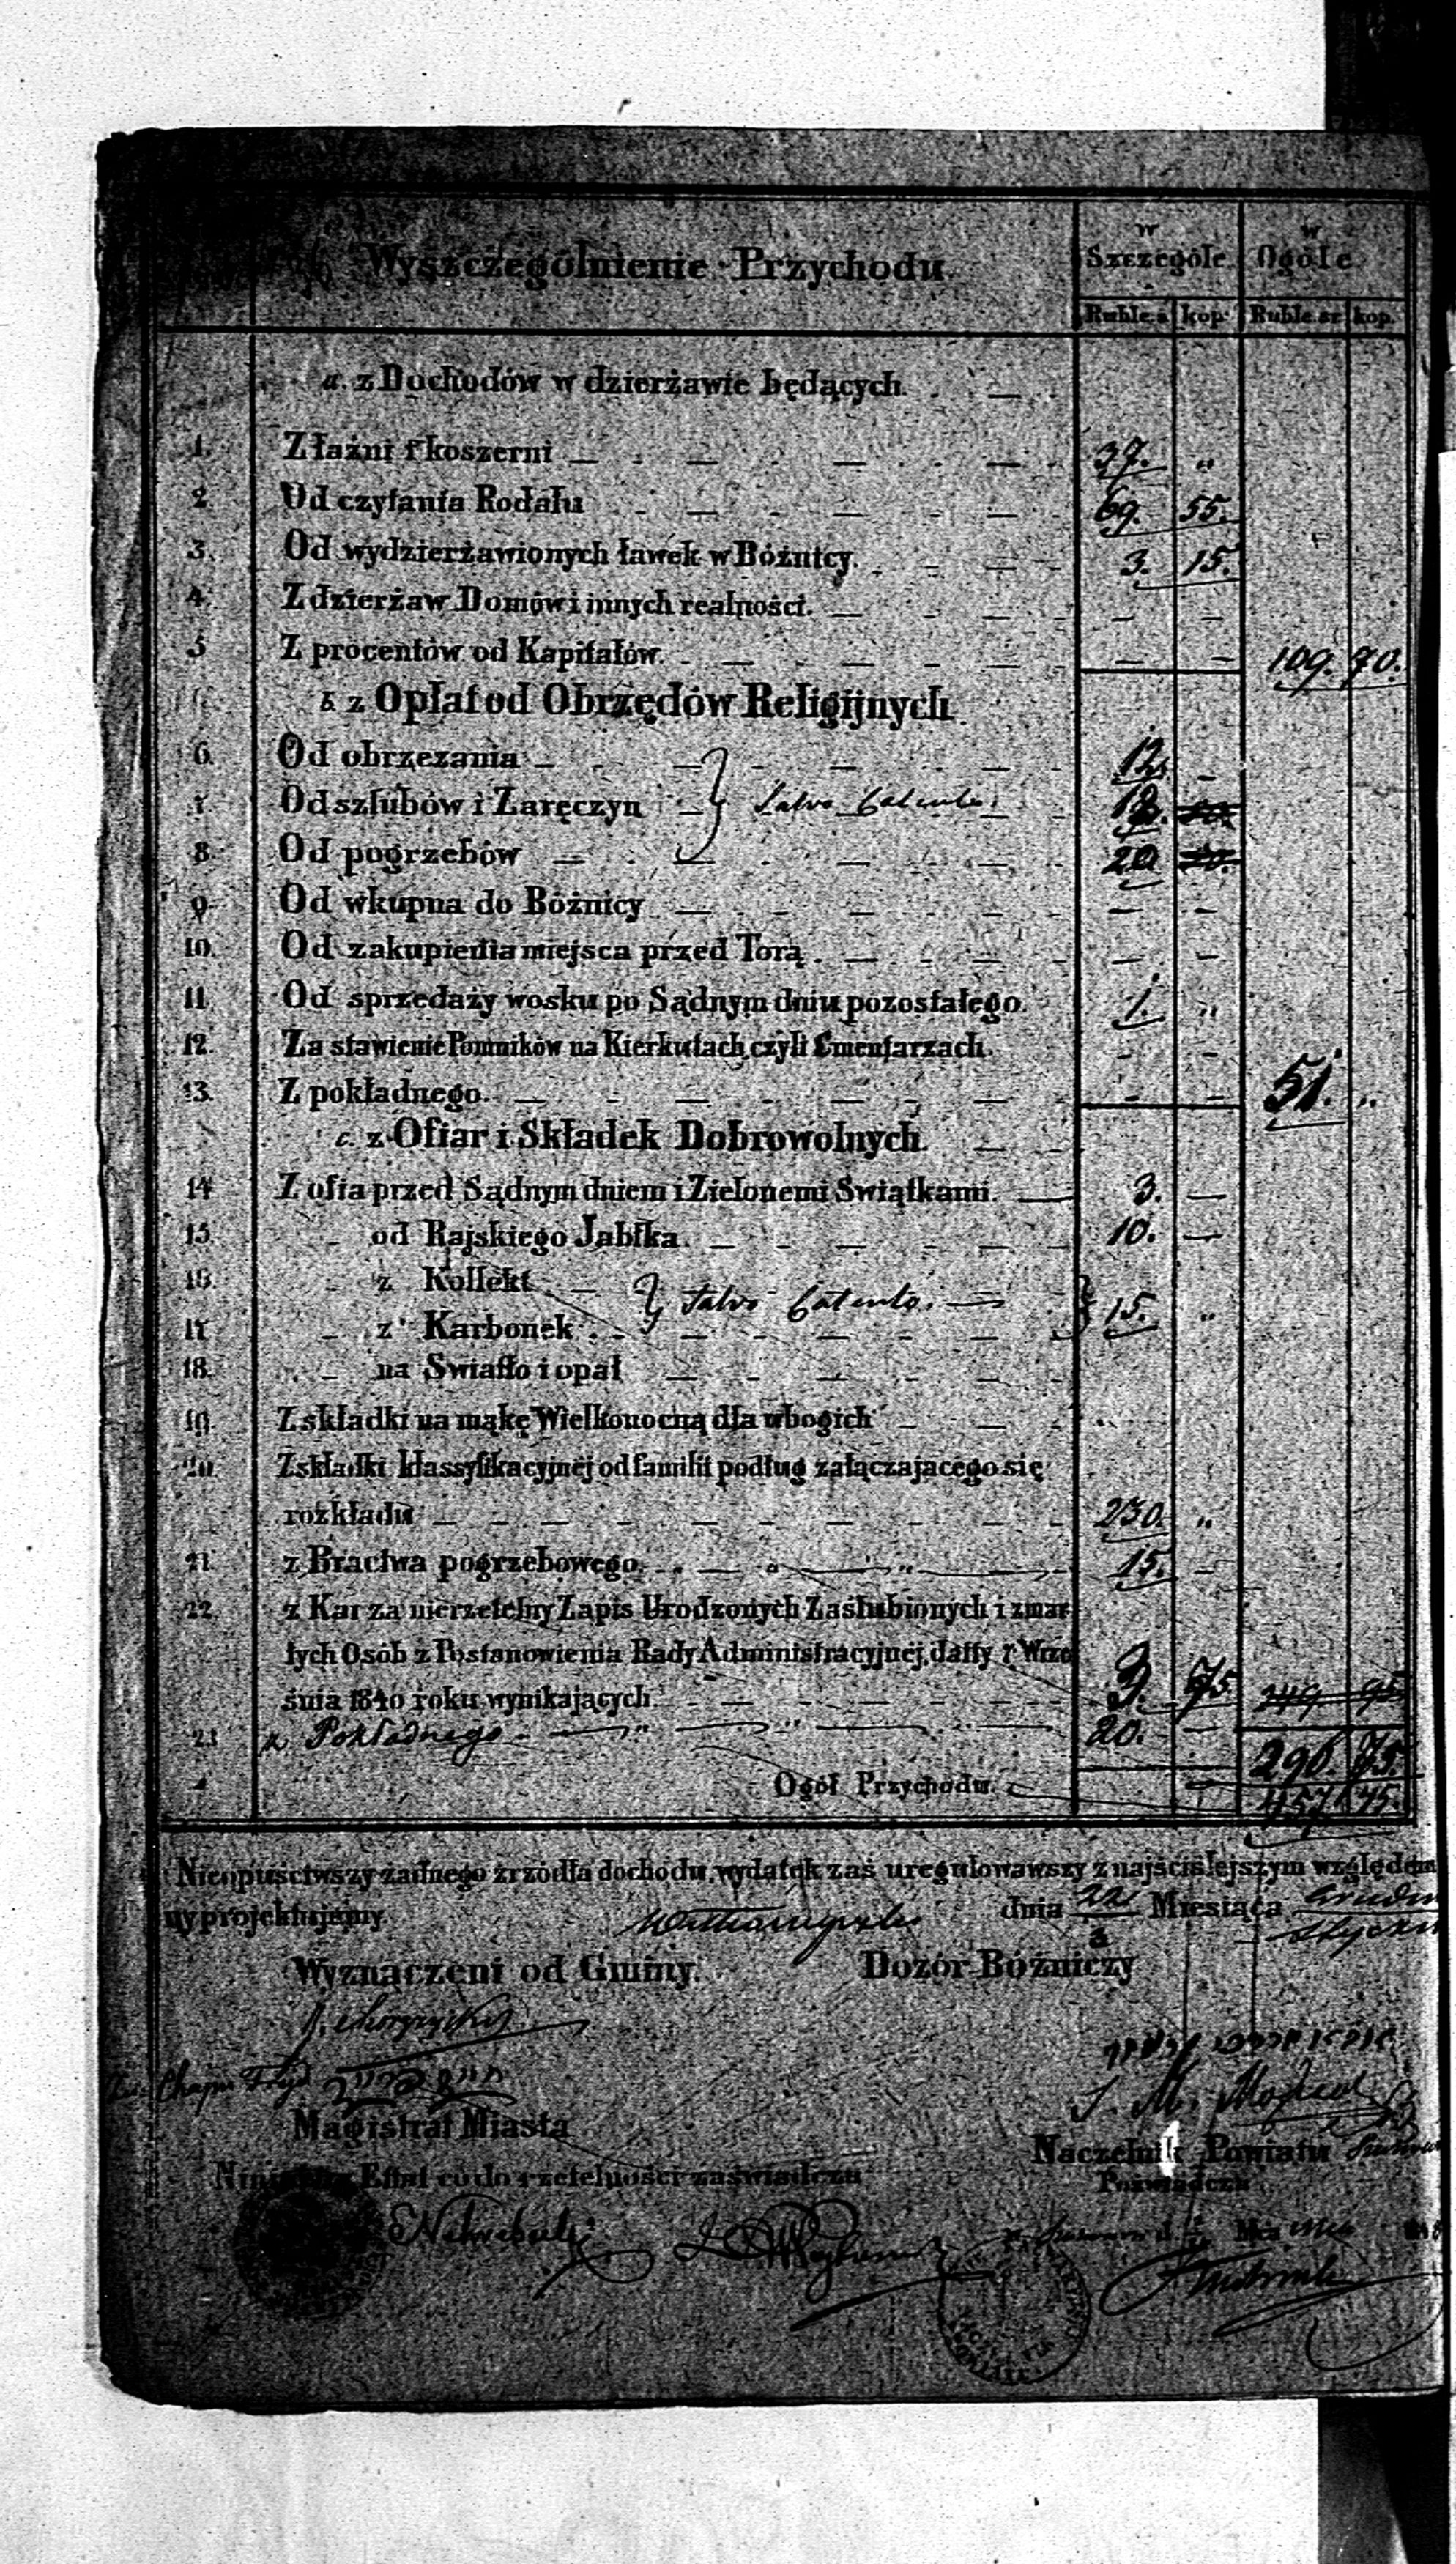 Wyszczególnienie Przychodu.
w Szczególe w Ogóle
Ruble s. kop. Ruble sr. kop.
a. z Dochodów w dzierżawie będących.
1. Z łaźni i koszerni 37. „
2. Od czytania Rodału 69. 55.
3. Od wydzierżawionych ławek w Bóżnicy. 3. 15.
4. Z dzierżaw Domów i innych realności. — —
5 Z procentów od Kapitałów. — — 109. 70.
b. z Opłat od Obrzędów Religijnych
6. Od obrzezania 12. —
7. Od szlubów i Zaręczyn Salvo Calculo. 18.
8. Od pogrzebów 20
9. Od wkupna do Bóżnicy — —
10. Od zakupienia miejsca przed Torą. — —
11. Od sprzedaży wosku po Sądnym dniu pozostałego. 1. „
12. Za stawienie Pomników na Kierkutach czyli Cmentarzach. — —
13. Z pokładnego. — — 51. „
c. z Ofiar i Składek Dobrowolnych.
14 Z ofia przed Sądnym dniem i Zielonemi Swiątkami. 3. —
15. od Rajskiego Jabłka. 10. —
16. z Kollekt
17 z Karbonek Salvo Calculo. 15. „
18. na Swiatło i opał
19. Z składki na mąkę Wielkonocną dla ubogich
20. Z składki klassyfikacyjnéj od familii podług załączającego się
rozkładu 230. „
21. z Bractwa pogrzebowego. 15. —
22 z Kar za nierzetelny Zapis Urodzonych Zaślubionych i zmar-
łych Osób z Postanowienia Rady Administracyjnéj, datty 7 Wrze
śnia 1840 roku wynikających 3. 75 249 95
23 z Pokładnego. 20. —
296. 75.
Ogół Przychodu. 457. 45.
Nieopuściwszy żadnego źrzódła dochodu, wydatek zaś uregulowawszy z najściślejszym względem
ny projektujemy. dnia 22/3 Miesiąca Grudn
Styczn
Wyznaczeni od Gminy. Dozór Bóżniczy
Chaim Frajd חיים פרייד
Magistrat Miasta
Naczelnik Powiatu
Niniejszy Etat co do rzetelności zaświadcza
Poświadcza